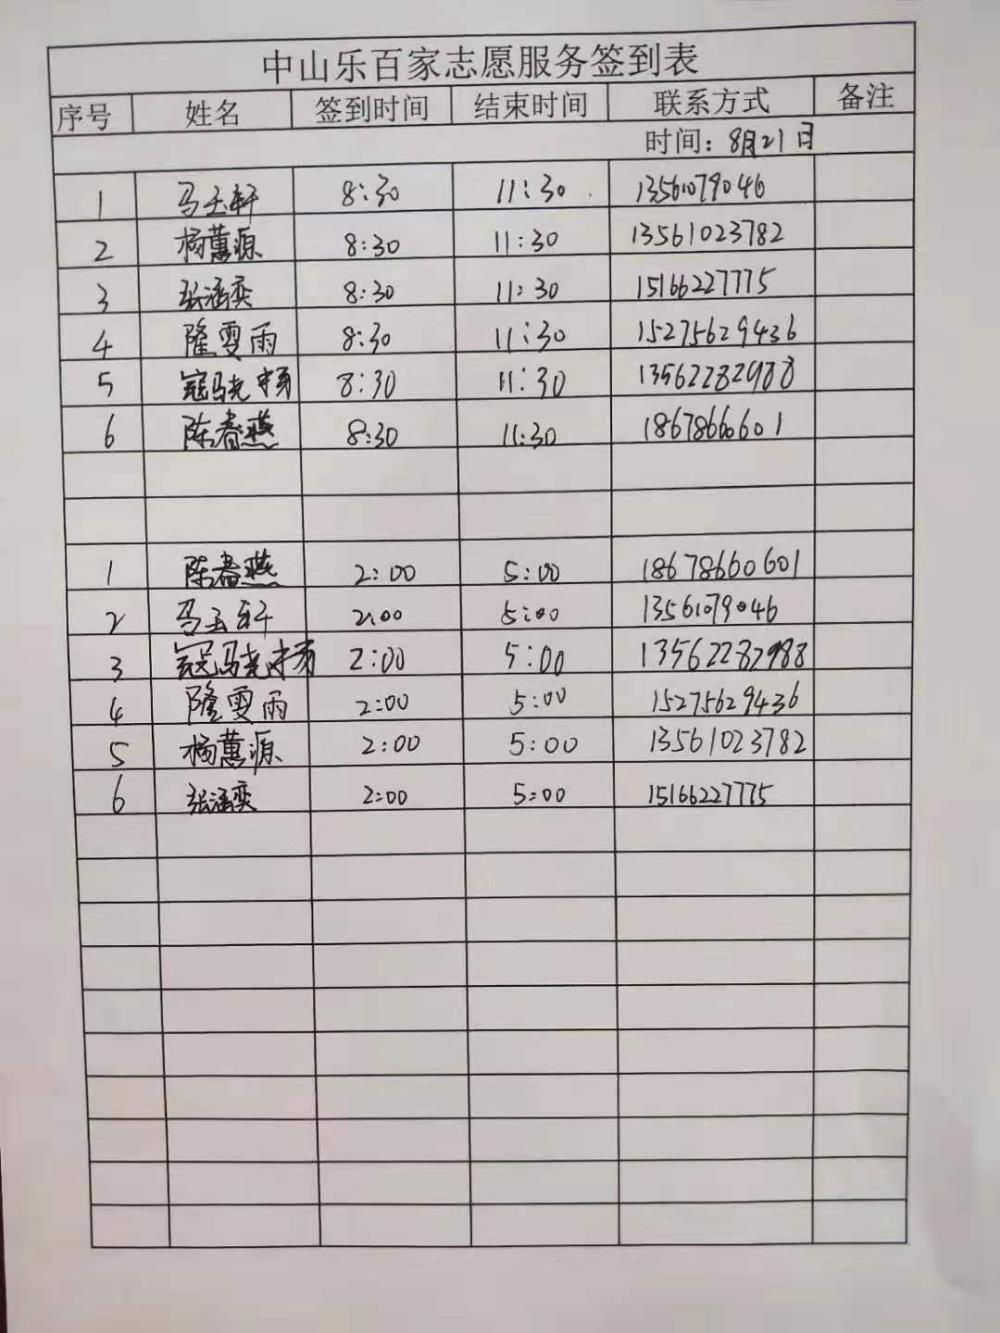 中山乐百家志愿服务签到表
序号 姓名 签到时间 结束时间 联系方式 备注
时间：8月21日
1 马玉轩 8:30 11:30 13561079046
2 杨蕙源 8:30 11:30 13561023782
3 张涵奕 8:30 11:30 15166227775
4 隆雯雨 8:30 11:30 15275629436
5 寇骁扬 8:30 11:30 13562282988
6 陈春燕 8:30 11:30 18678660601
1 陈春燕 2:00 5:00 18678660601
2 马玉轩 2:00 5:00 13561079046
3 寇骁扬 2:00 5:00 13562282988
4 隆雯雨 2:00 5:00 15275629436
5 杨蕙源 2:00 5:00 13561023782
6 张涵奕 2:00 5:00 15166227775